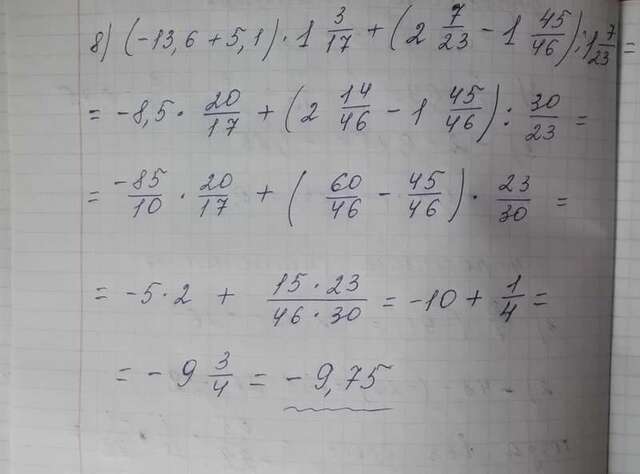 8) (-13,6 + 5,1) · 1 3/17 + (2 7/23 - 1 45/46) : 1 7/23 =
= -8,5 · 20/17 + (2 14/46 - 1 45/46) : 30/23 =
= -85/10 · 20/17 + (60/46 - 45/46) · 23/30 =
= -5 · 2 + 15 · 23/46 · 30 = -10 + 1/4 =
= - 9 3/4 = - 9,75